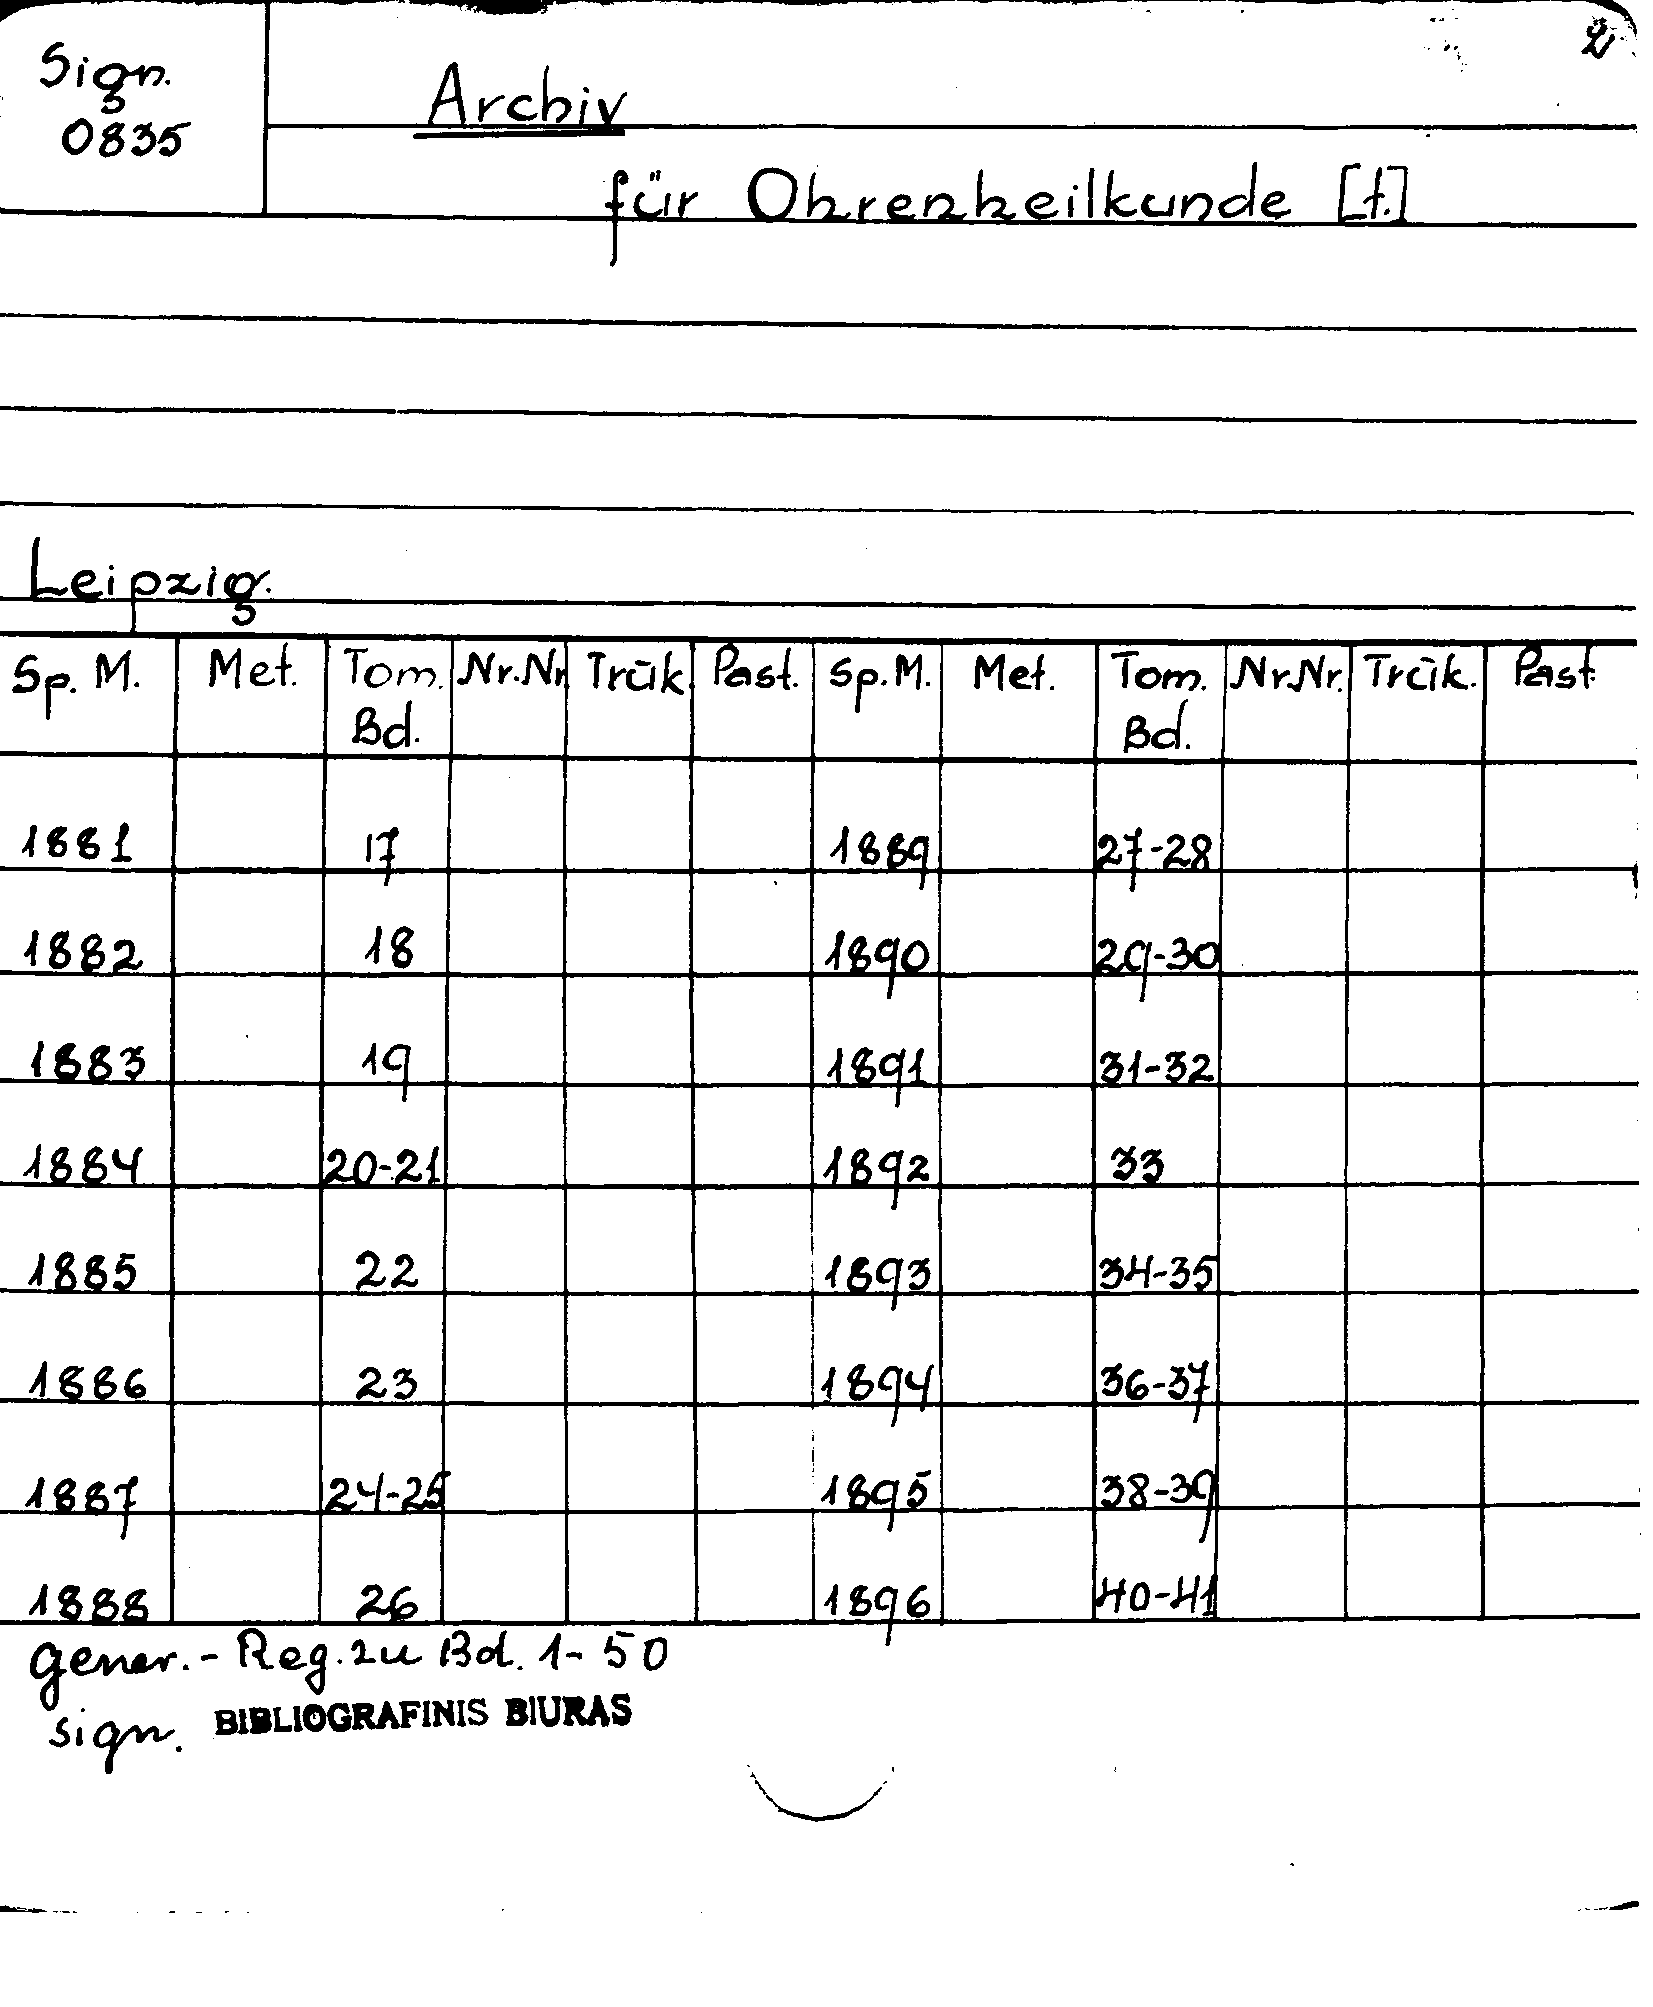 2
Sign.
0835
Archiv
für Ohrenheilkunde [t.]
Leipzig.
Sp. M. Met. Tom. Bd. Nr.Nr. Trūk. Past. Sp. M. Met. Tom. Bd. Nr.Nr. Trūk. Past.
1881 17 1889 27-28
1882 18 1890 29-30
1883 19 1891 31-32
1884 20-21 1892 33
1885 22 1893 34-35
1886 23 1894 36-37
1887 24-25 1895 38-39
1888 26 1896 40-41
gener.- Reg. zu Bd. 1-50
sign. BIBLIOGRAFINIS BIURAS